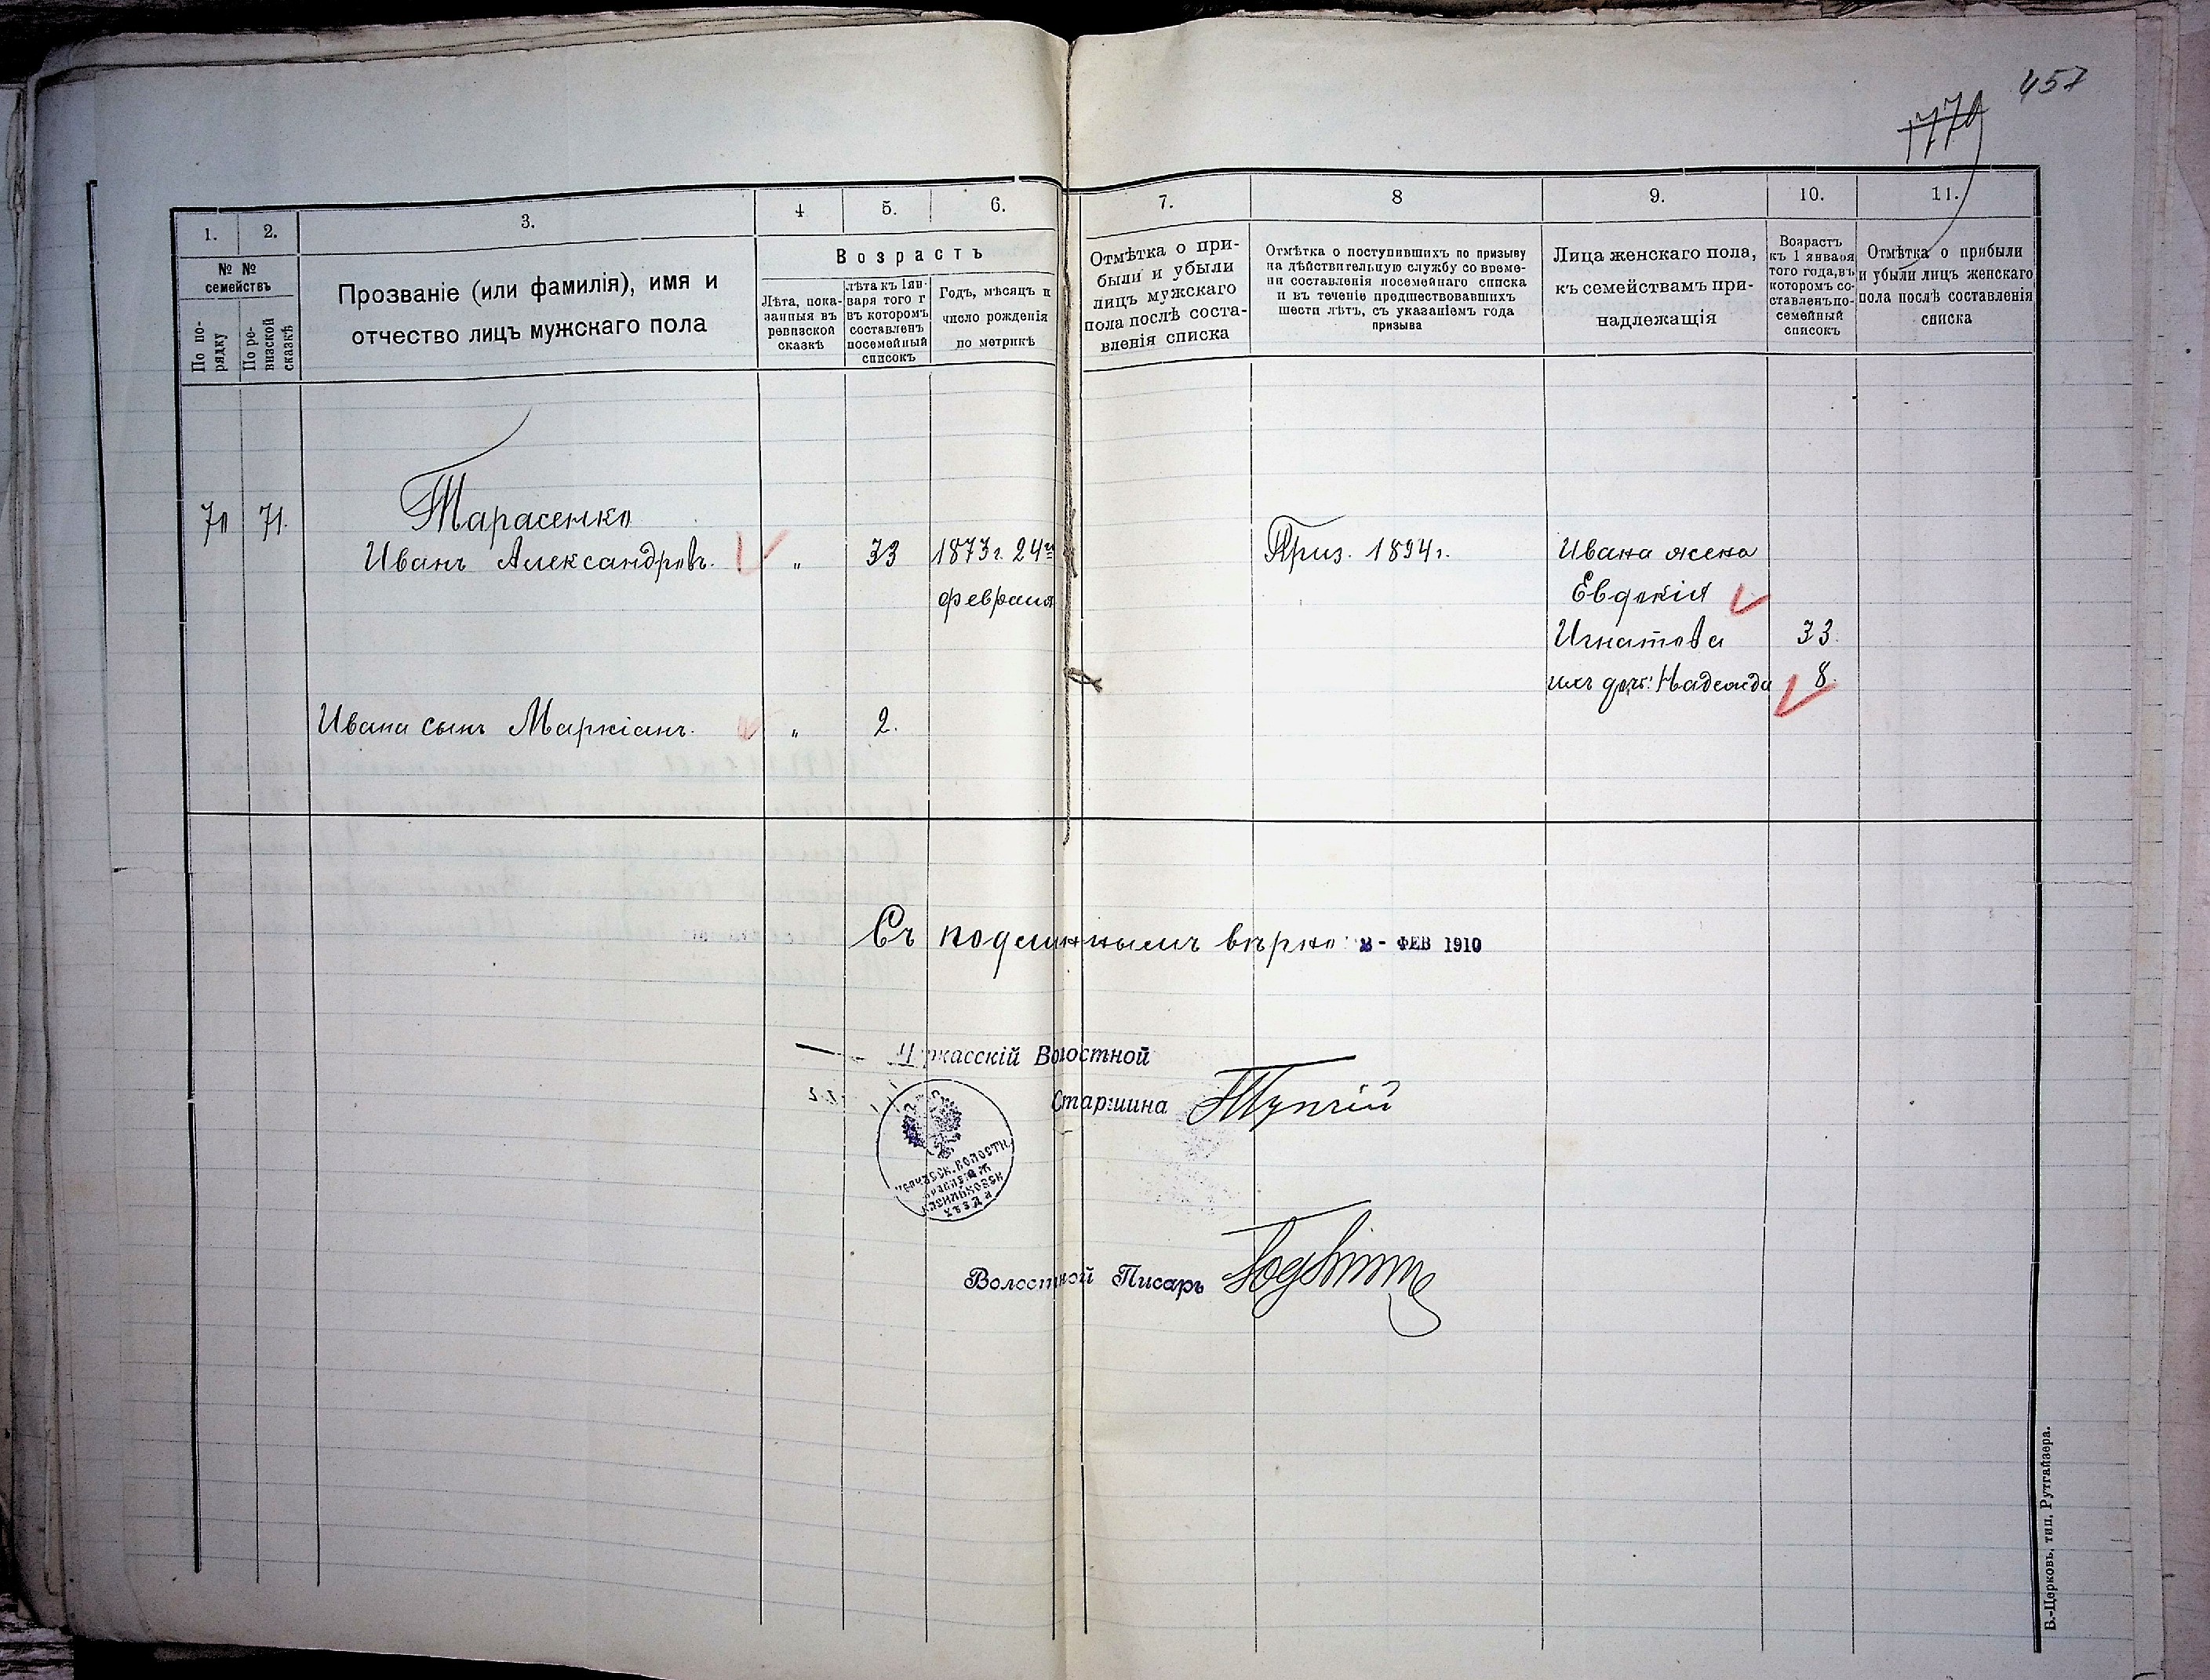 457
1770
1.
2.
3.
4
5.
6.
7.
8
9.
10.
11.
№ №
семействъ
По по-
рядку
По ре-
визской
сказкѣ
Прозваніе (или фамилія), имя и
отчество лицъ мужскаго пола
Возрастъ
Лѣта, пока-
занныя въ
ревизской
сказкѣ
лѣта къ 1 ян-
варя того г
въ которомъ
составленъ
посемейный
списокъ
Годъ, мѣсяцъ и
число рожденія
по метрикѣ
Отмѣтка о при-
были и убыли
лицъ мужскаго
пола послѣ соста-
вленія списка
Отмѣтка о поступившихъ по призыву
на дѣйствительную службу со време-
ни составленія посемейнаго списка
и въ теченіе предшествовавшихъ
шести лѣтъ, съ указаніемъ года
призыва
Лица женскаго пола,
къ семействамъ при-
надлежащія
Возрастъ
къ 1 января
того года, въ
которомъ со-
ставленъ по-
семейный
списокъ
Отмѣтка о прибыли
и убыли лицъ женскаго
пола послѣ составленія
списка
70 71.
Тарасенко
Иванъ Александровъ. " 33 1873 г. 24го
февраля
Приз. 1894 г.
Ивана жена
Евдокія
Игнатова 33.
ихъ доч: Надежда 8.
Ивана сынъ Маркіанъ. " 2.
Съ подлиннымъ вѣрно 3 - ФЕВ 1910
Черкасскій Волостной
Старшина
ЧЕРКАССК. ВОЛОСТН.
ПРАВЛЕНІЯ
ВАСИЛЬКОВСК
УѢЗДА
Волостной Писарь
Б.-Церковь, тип. Рутгайзера.